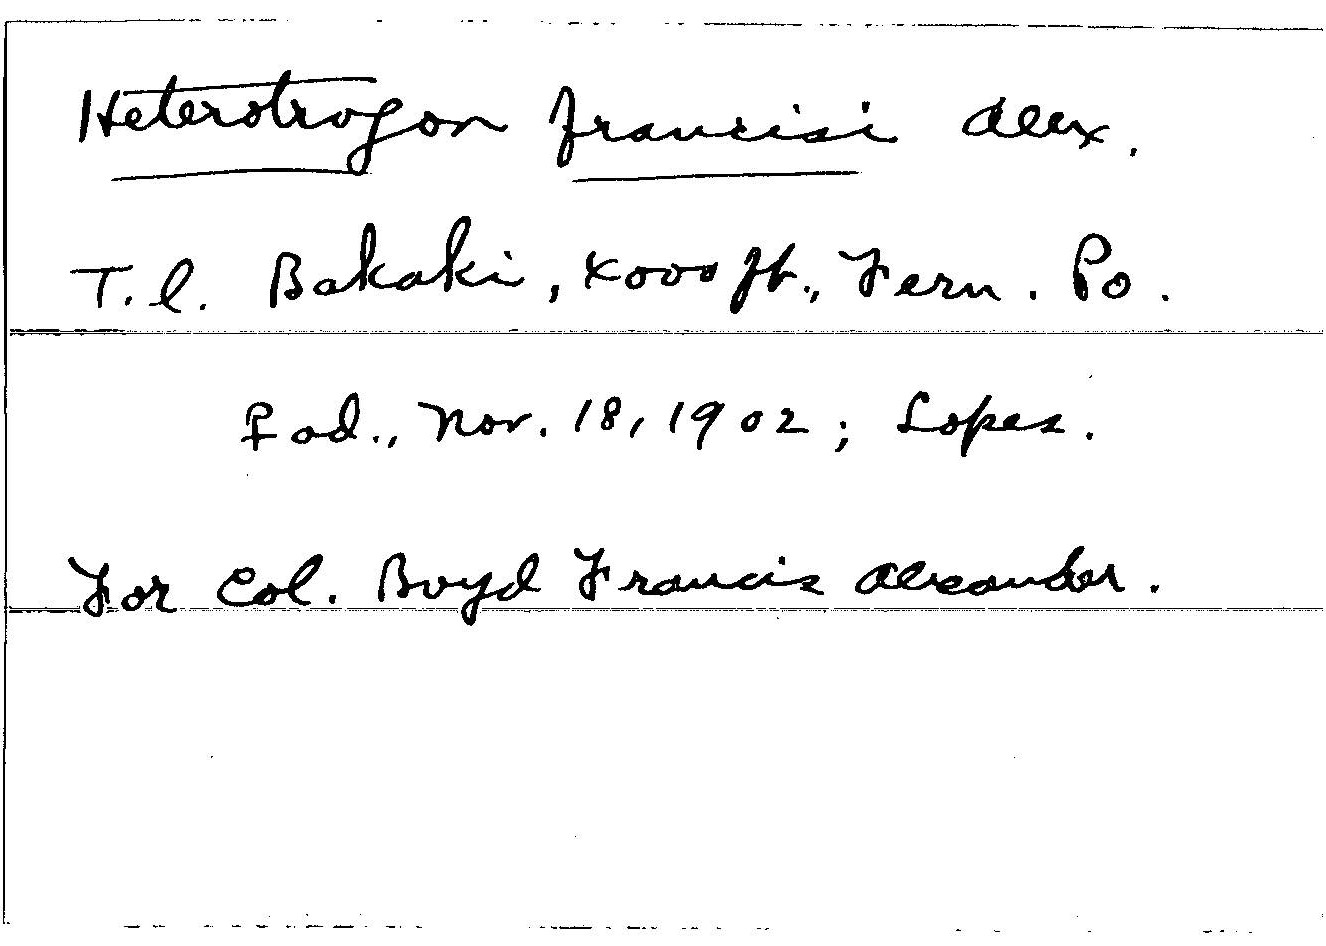 Heterotrogon francisi Alex.
T.l. Bakaki, 4000 ft., Fern. Po.
♀ ad., Nov. 18, 1902; Lopes.
For Col. Boyd Francis Alexander.